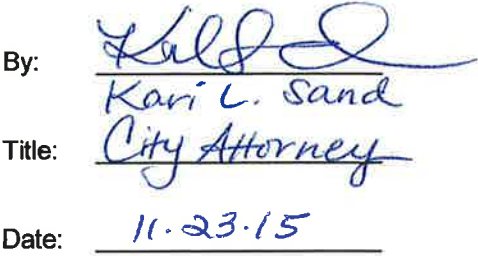 By:
Kari L. Sand
Title: City Attorney
Date: 11.23.15